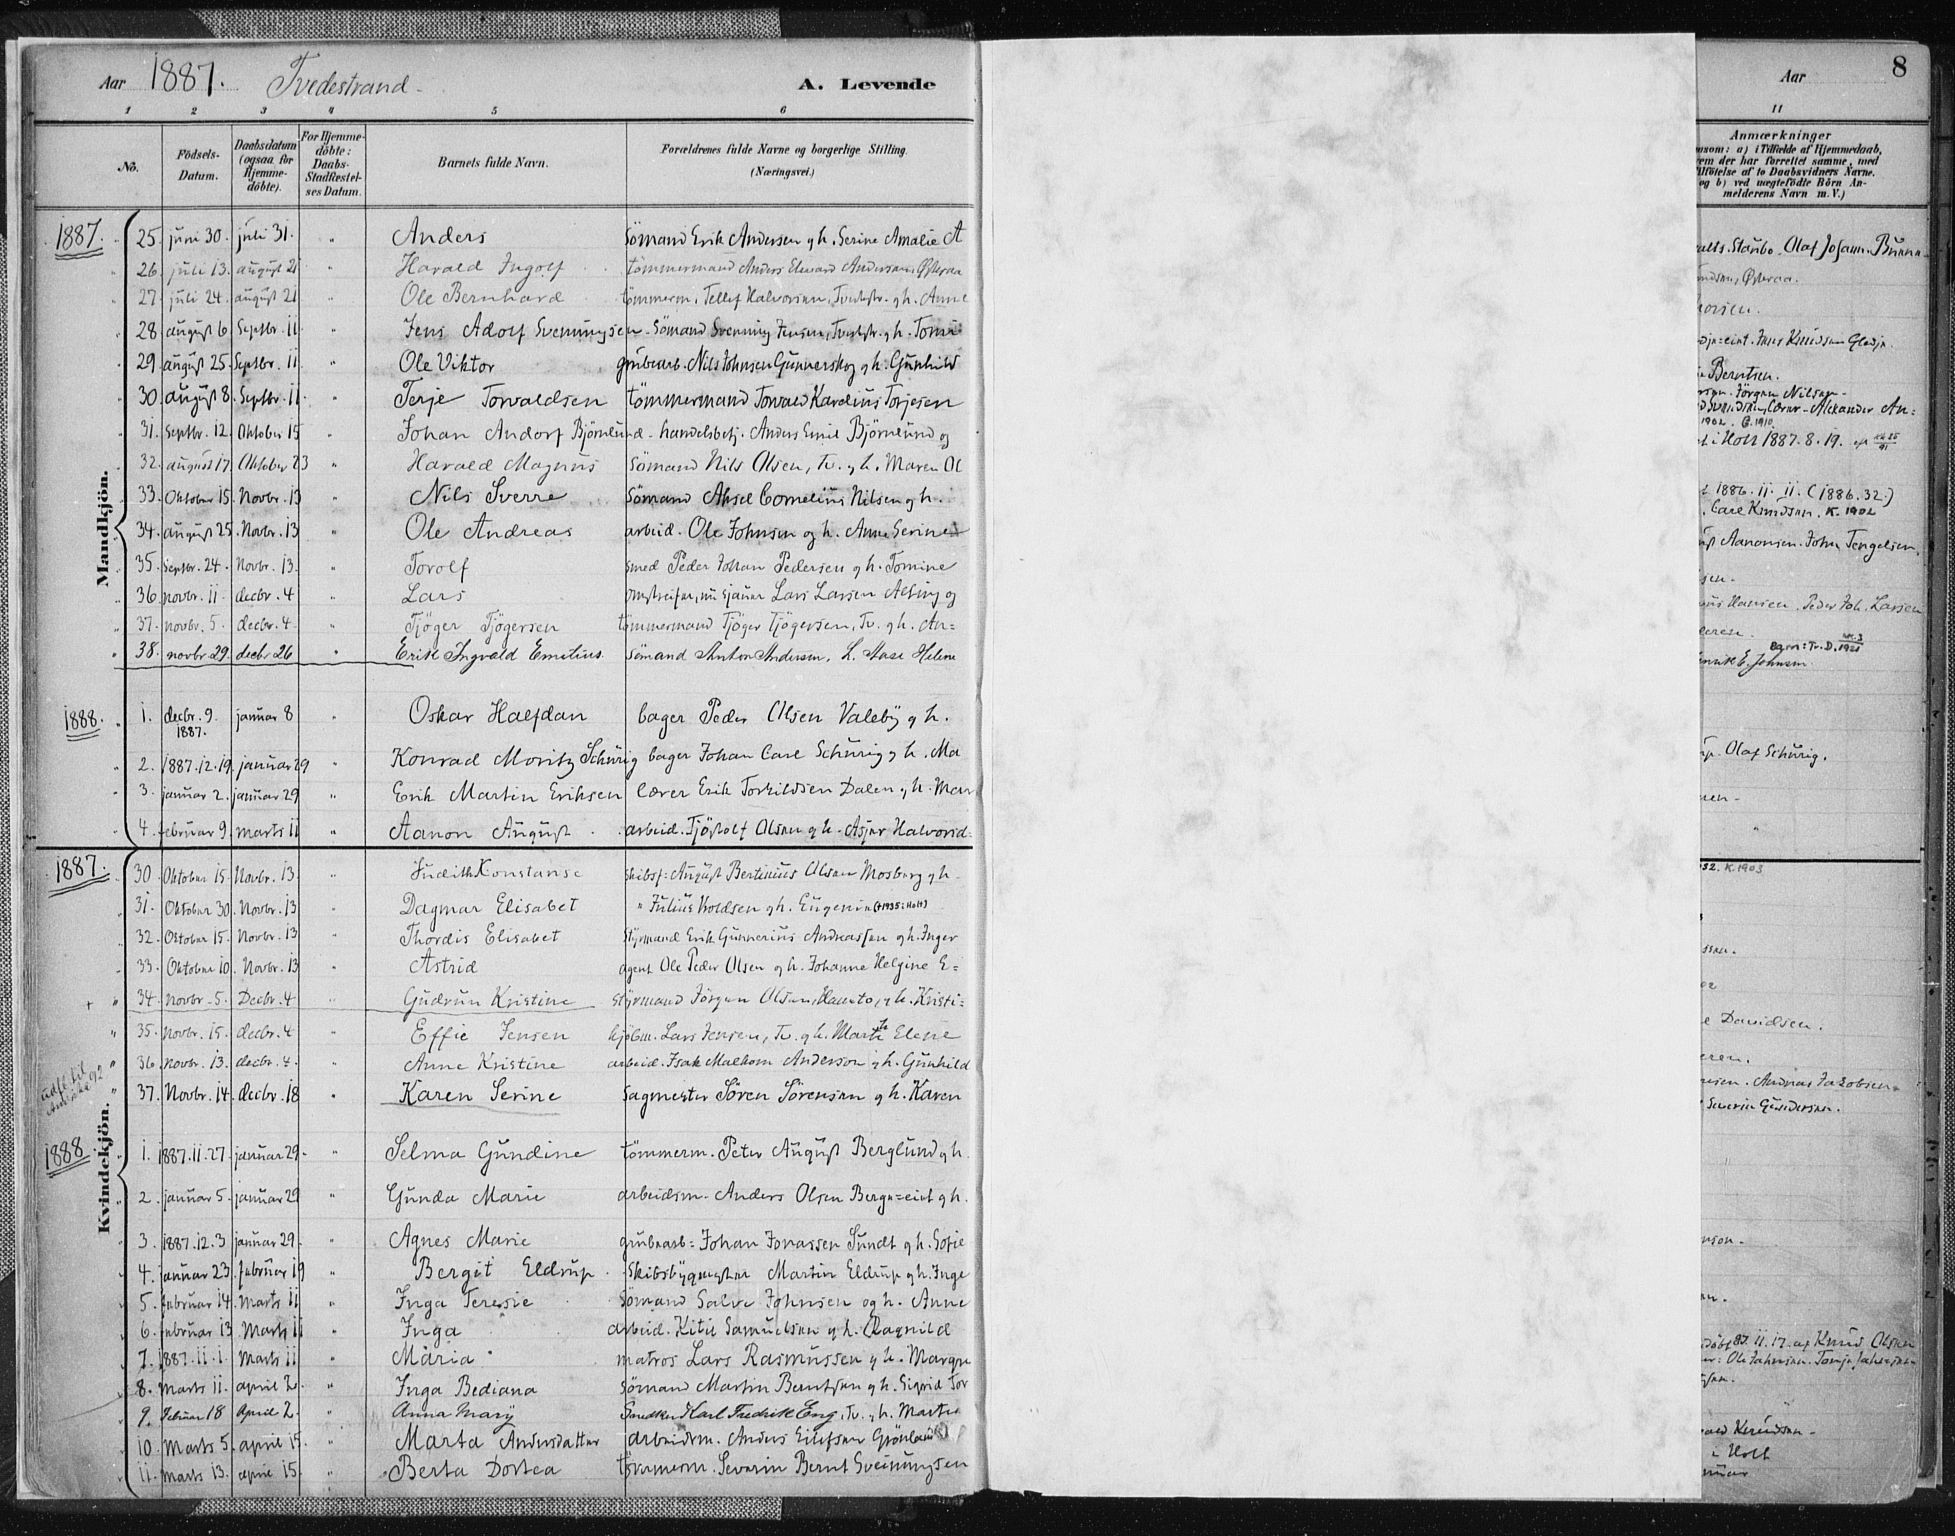 Aar 1887. Tvedestrand. A. Levende
1 2 3 4 5 6
No. Födsels-Datum. Daabsdatum (ogsaa for Hjemme-döbte). For Hjemme-döbte: Daabs-Stadfestel-ses Datum. Barnets fulde Navn. Forældrenes fulde Navne og borgerlige Stilling. (Næringsvei.)
Mandkjön.
1887. 25. juni 30. juli 31. " Anders Sömand Erik Andersen og h. Serine Amalie A
" 26. juli 13. august 21 " Harald Ingolf tömmermand Anders Edvard Andersen, Østeraa
" 27. juli 24. august 21 " Ole Bernhard tömmerm. Tellef Halvorsen, Tvedestr. og h. Anne
" 28. august 6 Septbr. 11. " Jens Adolf Svenningsen - Sömand Svenning Jensen, Tvedstr. og h. Tomi
" 29. august 25. Septbr. 11 " Ole Viktor grubearb. Nils Johnsen Gunnerskog og h. Gunhild
" 30. august 8. Septbr. 11. " Terje Torvaldsen tömmermand Torvald Karelius Torjesen
" 31. Septbr. 12. Oktober 15 " Johan Andorf Björnlund - handelsbetj. Anders Emil Björnlund og
" 32. august 17. Oktober 23 " Harald Magnus Sömand Nils Olsen, Tv. og h. Maren Ol
" 33. Oktober 15. Novbr. 13 " Nils Sverre Sömand Aksel Cornelius Nilsen og h.
" 34. august 25. Novbr. 13 " Ole Andreas arbeid. Ole Johnsen og h. Anne Serine
" 35. Septbr. 24. Novbr. 13. " Torolf smed Peder Johan Pedersen og h. Tomine
" 36. novbr. 11. decbr. 4 " Lars Lars Larsen og
" 37. novbr. 5. decbr. 4. " Tjöger Tjögersen tömmermand Tjöger Tjögersen, Tv. og h. An=
" 38. novbr. 29. decbr. 26 " Erik Ingvald Emilius Sömand Anton Andersen, h. Aase Helene
1888. " 1. decbr. 9. 1887. januar 8 " Oskar Halfdan bager Peder Olsen Valeby og h.
" 2. 1887.12.19. januar 29 " Konrad Moritz Schurig bager Johan Carl Schurig og h. Ma
" 3. januar 2. januar 29 " Erik Martin Eriksen Lærer Erik Torkildsen Dalen og h. Mar
" 4. februar 9. marts 11 " Aanon August arbeid. Tjöstolf Olsen og h. Asjer Halvorsd.
Kvindekjön.
1887. 30. Oktober 15. Novbr. 13. " Judith Konstanse skibsf: August Bertinius Olsen Mosberg og h.
" 31. Oktober 30. Novbr. 13 " Dagmar Elisabet " Julius Holdsen og h. Eugenia (+1935 i Holt)
" 32. Oktober 15. Novbr. 13 " Thordis Elisabet Styrmand Erik Gunnerius Andreassen og h. Inger
" 33. Oktober 10. Novbr. 13 " Astrid agent Ole Peder Olsen og h. Johanne Helgine E=
+ " 34. Novbr. 5. Decbr. 4 " Gudrun Kristine styrmand Jörgen Olsen, og h. Kristi=
" 35. Novbr. 15. decbr. 4 " Effie Jensen kjöbm. Lars Jensen, Tv. og h. Marthe Elene
" 36. novbr. 13. decbr. 4. " Anne Kristine arbeid. Isak Malkom Anderson og h. Gunhild
udfl. til 92
" 37. Novbr. 14. decbr. 18 " Karen Serine Sagmester Sören Sörensen og h. Karen
1888. " 1. 1887.11.27. januar 29. " Selma Gundine tömmerm. Peter August Berglund og h.
" 2. januar 5. januar 29 " Gunda Marie arbeidsm. Anders Olsen Berge=eiet og h.
" 3. 1887.12.3 januar 29. " Agnes Marie grubearb: Johan Jonassen Sundt og h. Sofie
" 4. januar 23. februar 19 " Bergit Eldrup Skibsbygmester Martin Eldrup og h. Inge
" 5. februar 14. Marts 11 " Inga Teresie Sömand Salve Johnsen og h. Anne
" 6. februar 13 Marts 11 " Inga arbeid. Kitil Samuelsen og h. Ragnild
" 7. 1887.11.1. Marts 11 " Maria matros Lars Rasmussen og h. Margre
" 8. Marts 11. april 2. " Inga Bediana Sömand Martin Berntsen og h. Sigrid Tor
" 9. Februar 18 April 2. " Anna Mary Snedker Karl Fredrik Eng, Tv. og h. Marthe
" 10. Marts 5. april 15. " Marta Andersdatter arbeidsm. Anders Eilefsen Grönland
" 11. Marts 13. april 15. " Berta Dortea tömmerm. Severin Bernt Sveinungsen
Aar 8
11
Anmærkninger
som: a) i Tilfælde af Hjemmedaab,
em der har forrettet samme, med
ilföielse af to Daabsvidners Navne.
og b) ved uegtefödte Börn An-
melderens Navn m. V.)
Olaf Johann. Bunna
Østeraa.
Jens Knudsen Gledje.
Berntsen.
Jörgen Nilsen
Alexander An=
1902. C. 1910.
i Holt 1887. 8. 19.
1886. 11. 11. (1886. 32.)
Carl Knudsen. K. 1902
Aanonsen. John Tengelsen.
sen.
Hansen. Peder Joh. Larsen
Tv. D. 1921
E. Johnsen
Olaf Schurig.
nen.
"
32. K. 1903
ssen.
02
e Davidsen.
eren.
Andreas Jakobsen
Severin Gundersen.
nson.
n.
87. 11. 17. af Knud Olsen
Ole Johnsen. Tomja
Knudsen
i Holt